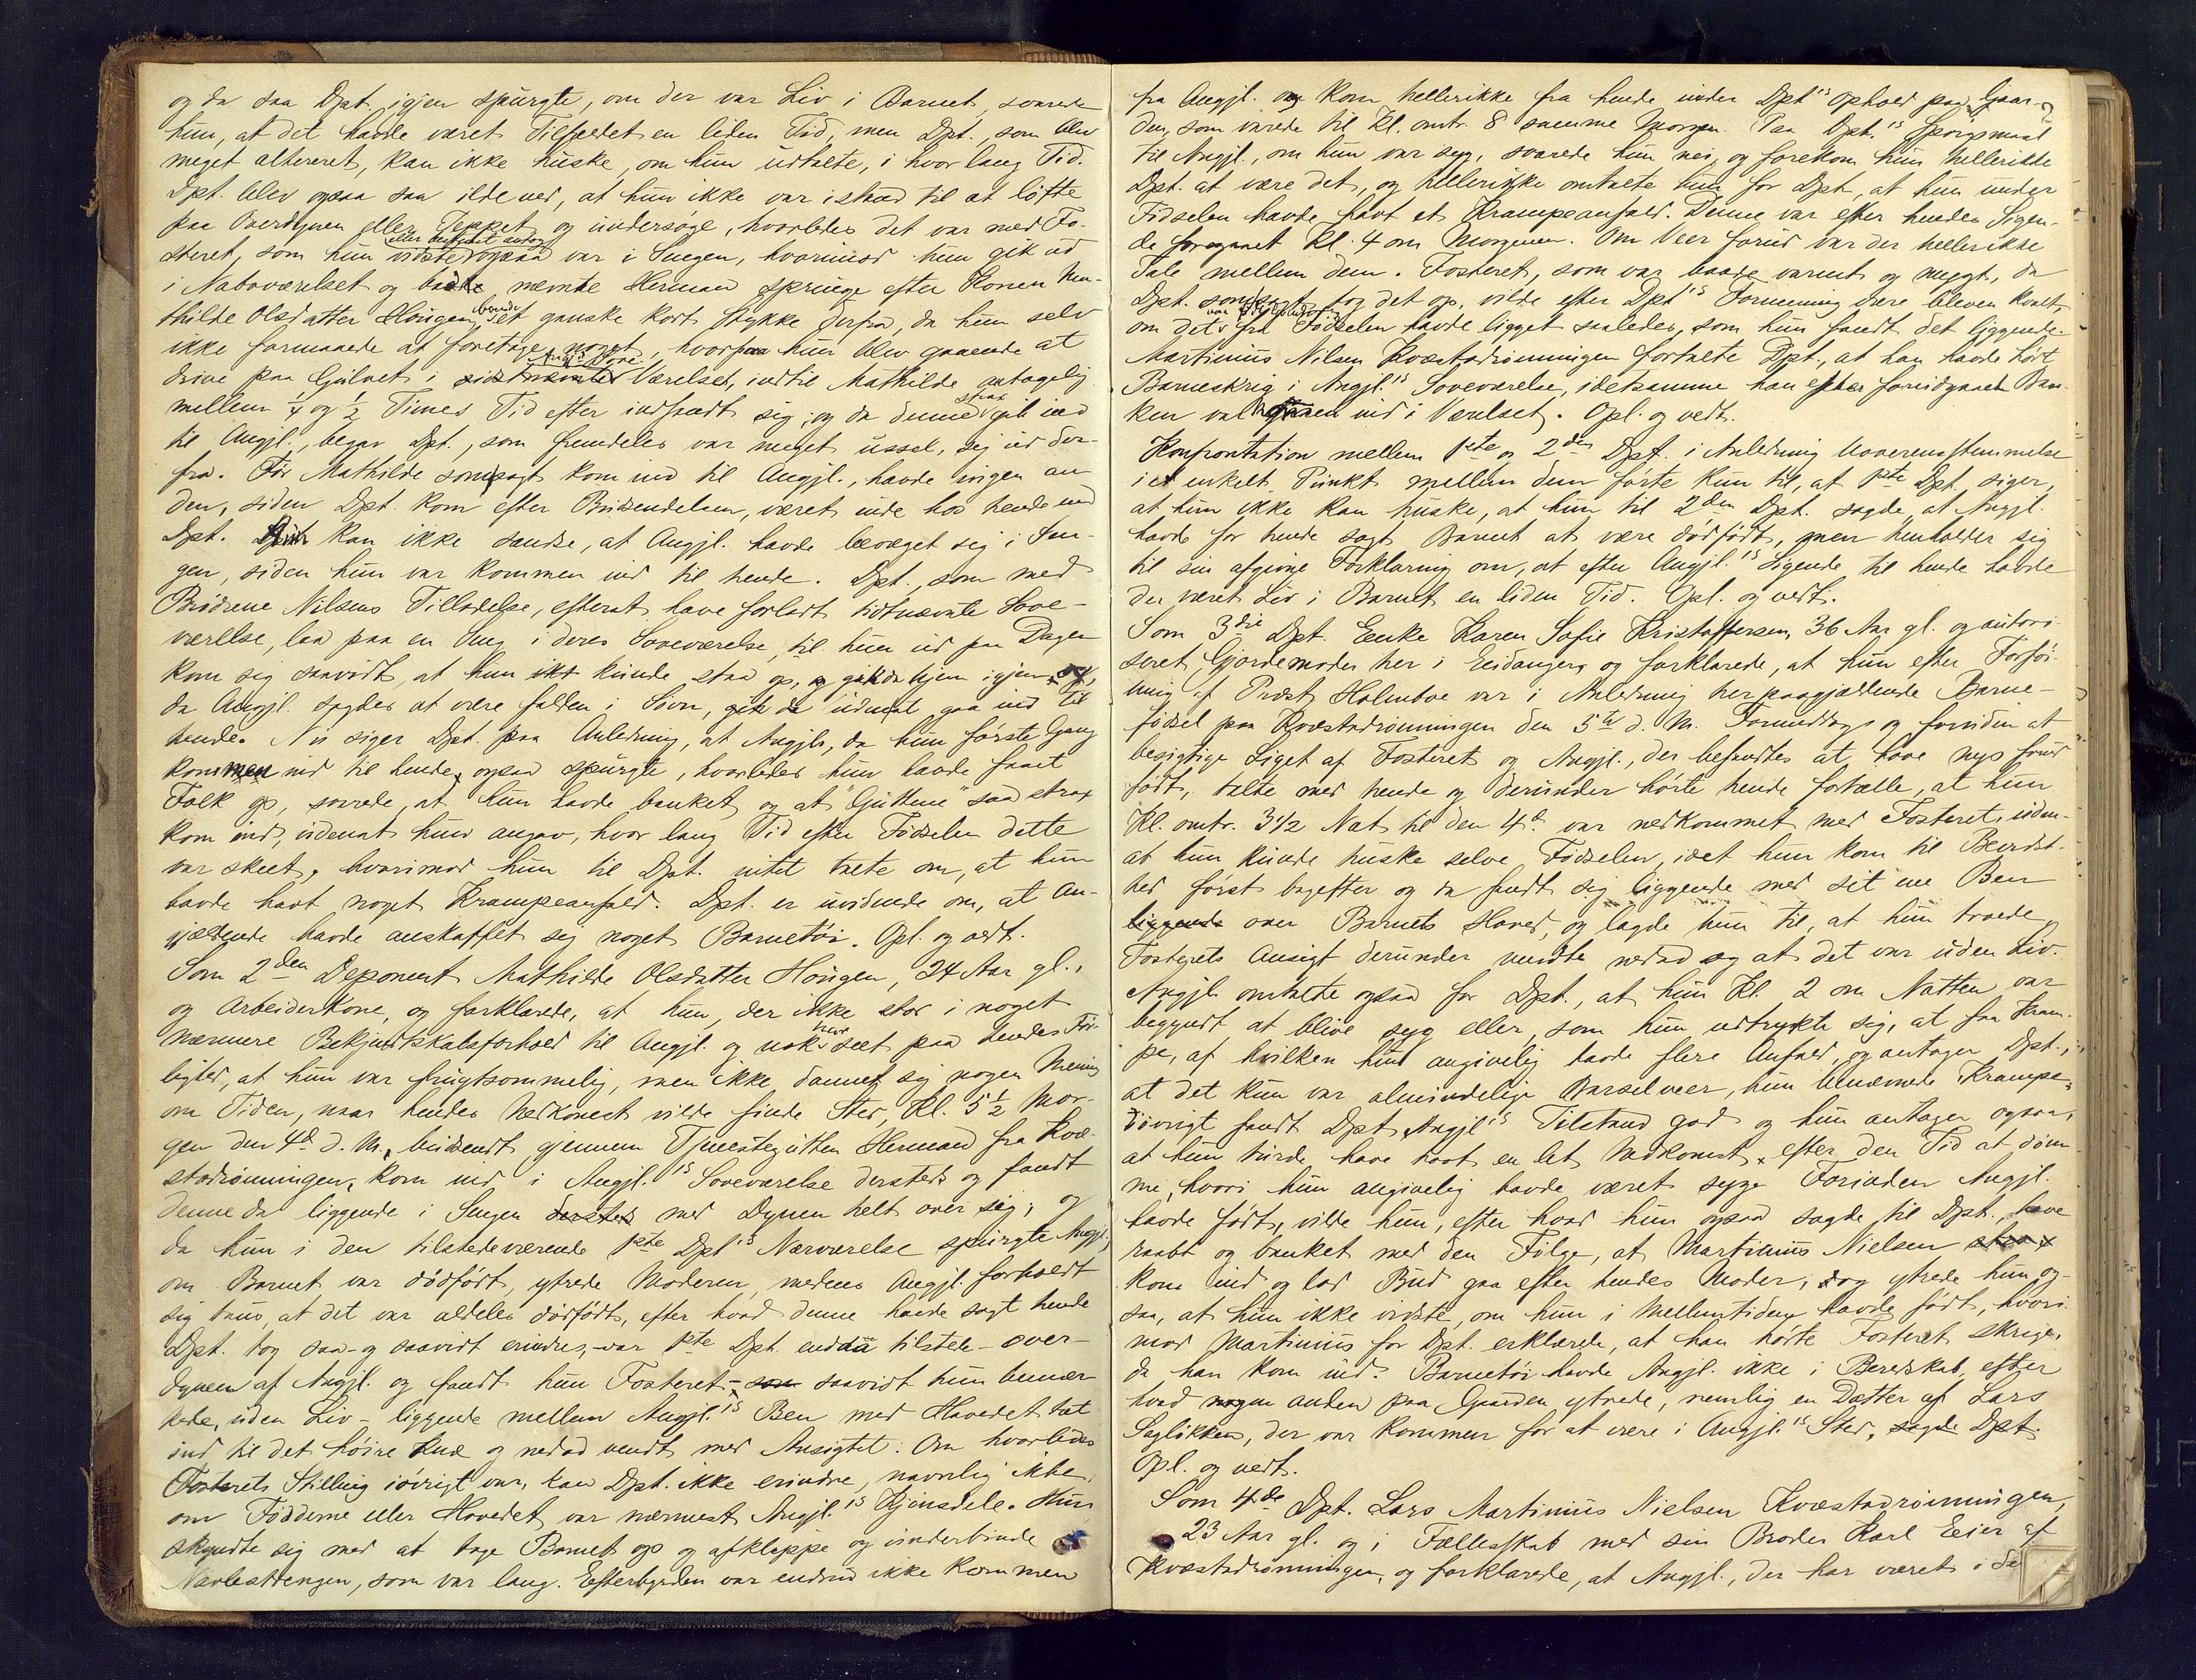 og da saa Dpt. igjen spurgte, om der var Liv i Barnet, svarede
hun, at det havde været Tilfældet en liden Tid, men Dpt., som blev
meget altereret, kan ikke huske, om hun udtalte, i hvor lang Tid.
Dpt. blev ogsaa saa ilde ved, at hun ikke var istand til at løfte
paa Overdynen eller Teppet og undersøge, hvorledes det var med Fo-
steret, som hun vidste eller bestemt antog ogsaa var i Sengen, hvorimod hun gik ud
i Naboværelset og badte nævnte Herman springe efter Konen Ma-
thilde Olsdatter Hougen, boende et ganske kort Stykke derfra, da hun selv
ikke formaaede at foretage noget, hvorpaa hun blev gaaende at
drive paa Gulvet i sidstnævnte Værelset, indtil Mathilde antagelig
mellem 1/4 og 1/2 Times Tid efter indfandt sig, og da denne strax gik ind
til Angjl., begav Dpt., som fremdeles var meget ussel, sig ud der-
fra. Før Mathilde somsagt kom ind til Angjl., havde ingen an
den, siden Dpt. kom efter Budsendelsen, været inde hos hende end
Dpt. kan ikke sandse, at Angjl. havde bevæget sig i Sen-
gen, siden hun var kommen ind til hende. Dpt., som med
Brødrene Nilsens Tilladelse, efterat have forladt tidtnævnte Sove-
værelse, laa paa en Seng i deres Soveværelse, til hun ud paa Dagen
kom sig saavidt, at hun ikt kunde staa op, og gik da hjem igjen og,
da Angjl. sagdes at være falden i Søvn, gik da udenat gaa ind til
hende. Nu siger Dpt. paa Anledning, at Angjl., da hun første Gang
kommen ind til hende, ogsaa spurgte, hvorledes hun havde faaet
Folk op, svarede, at hun havde banket og at "Guttene" saa strax
kom ind, udenat hun angav, hvor lang Tid efter Fødselen dette
var skeet, hvorimod hun til Dpt. intet talte om, at hun
havde havt noget Krampeanfald. Dpt. er uvidende om, at An-
gjældende havde anskaffet sig noget Barnetøi. Opl. og vedt.
Som 2den Deponent Mathilde Olsdatter Hougen, 24 Aar gl.,
og Arbeiderkone, og forklarede, at hun, der ikke stod i noget
nærmere Bekjendtskabsforhold til Angjl. og nok har seet paa hendes Før-
lighed, at hun var frugtsommelig, men ikke dannet sig nogen Mening
om Tiden, naar hendes Nedkomst vilde finde Sted, Kl. 5 1/2 Mor-
gen den 4de d. M., budsendt gjennem Tjenestegutten Herman fra Kvæ-
stadrønningen, kom ind i Angjl.'s Soveværelse dersteds og fandt
denne da liggende i Sengen dersteds med Dynen helt over sig, og
da hun i den tilstedeværende 1ste Dpt's Nærværelse spurgte Angjl.,
om Barnet var dødfødt, ytrede Moderen, medens Angjl. forholdt
sig taus, at det var aldeles dødfødt, efter hvad denne havde sagt hende
Dpt. tog saa - og saavidt erindres, var 1ste Dpt. endda tilstede - over-
dynen af Angjl. og fandt hun Fosteret - som saavidt hun bemær-
kede, uden Liv - liggende mellem Angjl.'s Ben med Hovedet tæt
ind til det høire Knæ og nedad vendt med Ansigtet. Om hvorledes
Fosterets Stilling iøvrigt var, kan Dpt. ikke erindre, navnlig ikke,
om Fødderne eller Hovedet var nærmest Angjl.'s Kjønsdele. Hun
skyndte sig med at tage Barnet op og afklippe og underbinde
Navlestrengen, som var lang. Efterbyrden var endnu ikke kommen
fra Angjl. og kom hellerikke fra hende under Dpt's Ophold paa Gaar-
den, som varede til Kl. omtr. 8 samme Morgen. Paa Dpt.'s Spørgsmaal
til Angjl., om hun var syg, svarede hun nei, og forekom hun hellerikke
Dpt. at være det, og hellerikke omtalte hun for Dpt., at hun under
Fødselen havde havt et Krampeanfald. Denne var efter hendes Sigen-
de foregaaet Kl. 4 om Morgenen. Om Veer forud var der hellerikke
Tale mellem dem. Fosteret, som var baade varmt og mygt, da
Dpt. somsagt tog det op, vilde efter Dpt's Formening være bleven kvalt,
om det fra Fødselen havde ligget saaledes, som hun fandt det liggende.
Martinius Nilsen Kvæstadrønningen fortalte Dpt., at han havde hørt
Barneskrig i Angjl.'s Soveværelse, idetsamme han efter forudgaaet Ban-
ken var ind i Værelset. Opl. og vedt.
Konfrontation mellem 1ste og 2den Dpt. i Anledning Uoverensstemmelse
i et enkelt Punkt mellem dem førte kun til, at 1ste Dpt. siger,
at hun ikke kan huske, at hun til 2den Dpt. sagde, at Angjl.
havde for hende sagt Barnet at være dødfødt, men henholder sig
til sin afgivne Forklaring om, at efter Angjl.'s Sigende til hende havde
der været Liv i Barnet en liden Tid. Opl. og vedt.
Som 3die Dpt. Enke Karen Sofie Kristoffersen, 36 Aar gl. og autori-
seret Gjordemoder her i Eidanger, og forklarede, at hun efter Forføi-
ning af Præst Holmboe var i Anledning herpaagjældende Barne-
fødsel paa Kvæstadrønningen den 5te d. M. Formiddags og foruden at
besigtige Liget af Fosteret og Angjl., der befandtes at have nys forud
født, talte med hende og derunder hørte hende fortælle, at hun
Kl. omtr. 3 1/2 Nat til den 4de var nedkommet med Fosteret, uden-
at hun kunde huske selve Fødselen, idet hun kom til Bevidst-
hed først bagefter og da fandt sig liggende med sit ene Ben
liggende over Barnets Hoved, og lagde hun til, at hun troede,
Fosterets Ansigt derunder vendte nedad og at det var uden Liv.
Angjl. omtalte ogsaa for Dpt., at hun Kl. 2 om Natten var
begyndt at blive syg eller, som hun udtrykte sig, at faa Kram-
pe, af hvilken hun angivelig havde flere Anfald, og antager Dpt.,
at det kun var almindelige Barselveer, hun benævnede Krampe.
Iøvrigt fandt Dpt. Angjl's Tilstand god og hun antager ogsaa,
at hun turde have havt en let Nedkomst, efter den Tid at døm-
me, hvori hun angivelig havde været syg. Forinden Angjl.
havde født, vilde hun, efter hvad hun ogsaa sagde til Dpt., have
raabt og banket med den Følge, at Martinius Nielsen strax
kom ind og lod Bud gaa efter hendes Moder, dog ytrede hun og-
saa, at hun ikke vidste, om hun i Mellemtiden havde født, hvori-
mod Martinius for Dpt. erklærede, at han hørte Fosteret skrige,
da han kom ind. Barnetøi havde Angjl. ikke i Beredskab, efter
hvad nogen anden paa Gaarden ytrede, nemlig en Datter af Lars
Sagløkken, der var kommen for at være i Angjl.'s Sted, sagde Dpt.
Opl. og vedt.
Som 4de Dpt. Lars Martinius Nielsen Kvæstadrønningen,
23 Aar gl. og i Fællesskab med sin Broder Karl Eier af
Kvæstadrønningen, og forklarede, at Angjl., der har været i de